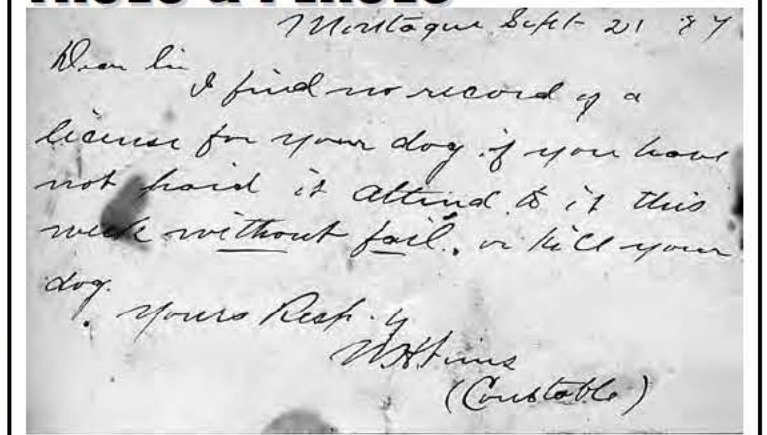 Montague Sept 21 87
Dear Sir
I find no record of a
license for your dog. if you have
not paid it attend to it this
week without fail. or kill your
dog.
Yours Resp.y
(Constable)